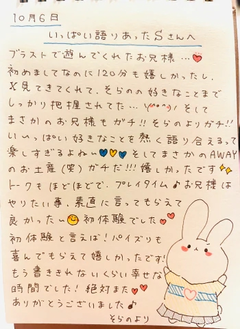 10月6日
いっぱい語りあったSさんへ
ブラストで遊んでくれたお兄様…♥
初めましてなのに120分も嬉しかったし、
X見てきてくれて、そらのの好きなことまで
しっかり把握されてた… \(^o^)/ そして
まさかのお兄様もガチ!! そらのよりガチ!!
いいっぱい好きなことを熱く語り合えるって
楽しすぎるよねぃ💙💛💙 そしてまさかのAWAY
のお土産(笑)ガチだ!!! 嬉しかったです
トークもほどほどで、プレイタイム♪お兄様は
やりたい事、素直に言ってもらえて
良かったぃ😊初体験でした♥
初体験と言えば!パイズリも
喜んでもらえて嬉しかったです!
もう書ききれないくらい幸せな
時間でした!絶対また♥
ありがとうございました♪
そらのより